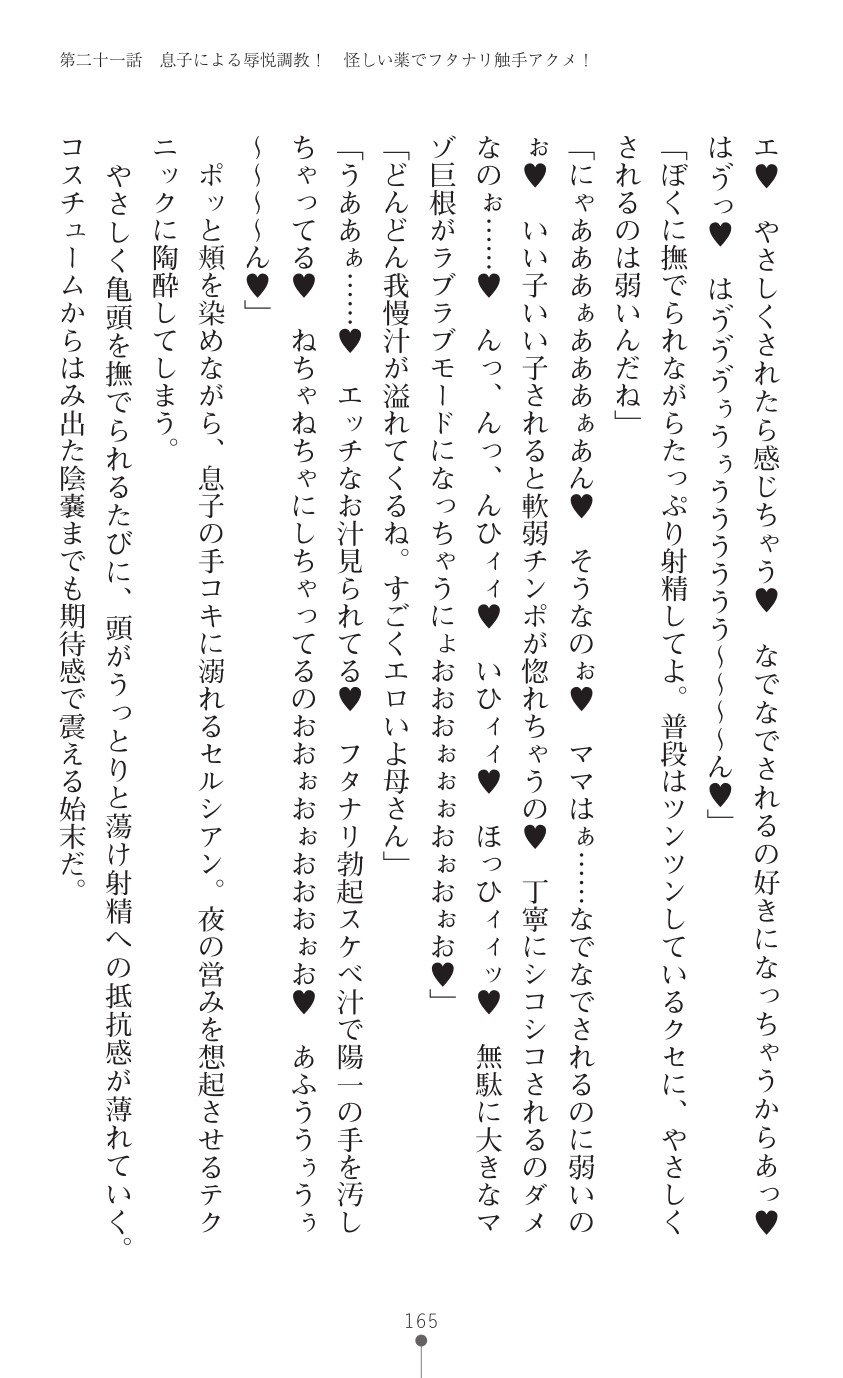 第二十一話　息子による辱悦調教！　怪しい薬でフタナリ触手アクメ！
エ♥　やさしくされたら感じちゃう♥　なでなでされるの好きになっちゃうからあっ♥
はゔっ♥　はゔゔゔぅうぅうううううう～～～～ん♥」
「ぼくに撫でられながらたっぷり射精してよ。普段はツンツンしているクセに、やさしく
されるのは弱いんだね」
「にゃあああぁあああぁあん♥　そうなのぉ♥　ママはぁ……なでなでされるのに弱いの
ぉ♥　いい子いい子されると軟弱チンポが惚れちゃうの♥　丁寧にシコシコされるのダメ
なのぉ……♥　んっ、んっ、んひィィ♥　いひィィ♥　ほっひィィッ♥　無駄に大きなマ
ゾ巨根がラブラブモードになっちゃうにょおおおぉぉぉおぉおぉお♥」
「どんどん我慢汁が溢れてくるね。すごくエロいよ母さん」
「うああぁ……♥　エッチなお汁見られてる♥　フタナリ勃起スケベ汁で陽一の手を汚し
ちゃってる♥　ねちゃねちゃにしちゃってるのおおぉおぉおおおぉお♥　あふううぅうぅ
～～～～ん♥」
　ポッと頬を染めながら、息子の手コキに溺れるセルシアン。夜の営みを想起させるテク
ニックに陶酔してしまう。
　やさしく亀頭を撫でられるたびに、頭がうっとりと蕩け射精への抵抗感が薄れていく。
コスチュームからはみ出た陰嚢までも期待感で震える始末だ。
165